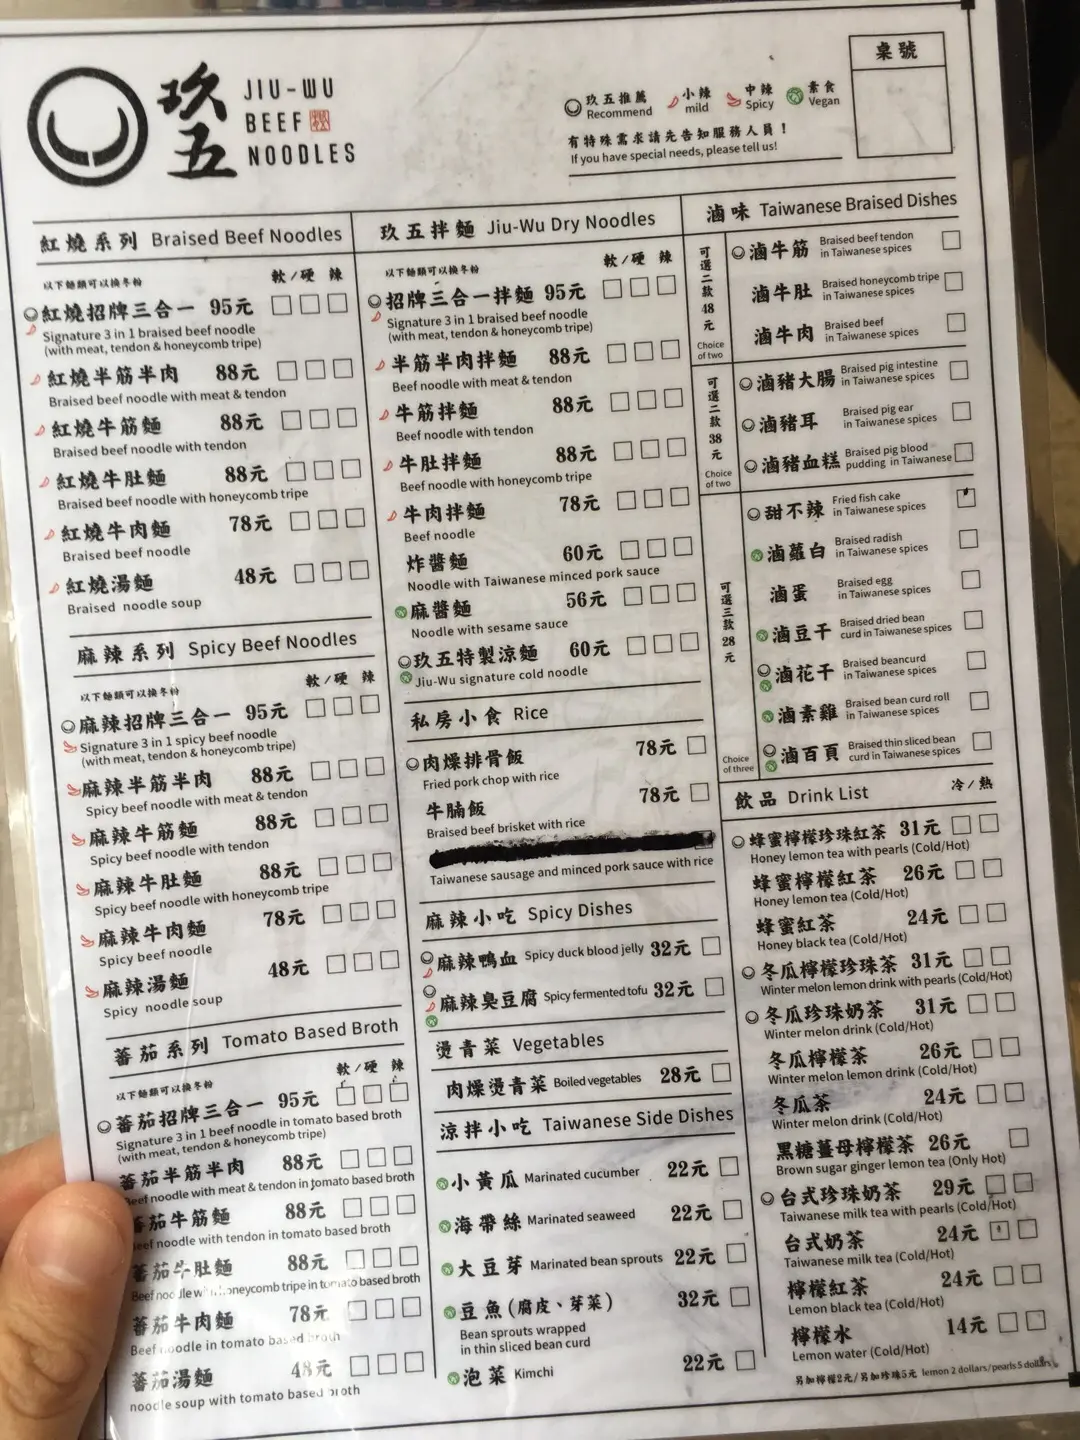 玖五
JIU-WU
BEEF
NOODLES
玖五推薦 Recommend
小辣 mild
中辣 Spicy
素食 Vegan
有特殊需求請先告知服務人員！
If you have special needs, please tell us!
桌號
紅燒系列 Braised Beef Noodles
以下麵類可以換冬粉 軟/硬 辣
紅燒招牌三合一 95元
Signature 3 in 1 braised beef noodle
(with meat, tendon & honeycomb tripe)
紅燒半筋半肉 88元
Braised beef noodle with meat & tendon
紅燒牛筋麵 88元
Braised beef noodle with tendon
紅燒牛肚麵 88元
Braised beef noodle with honeycomb tripe
紅燒牛肉麵 78元
Braised beef noodle
紅燒湯麵 48元
Braised noodle soup
麻辣系列 Spicy Beef Noodles
以下麵類可以換冬粉 軟/硬 辣
麻辣招牌三合一 95元
Signature 3 in 1 spicy beef noodle
(with meat, tendon & honeycomb tripe)
麻辣半筋半肉 88元
Spicy beef noodle with meat & tendon
麻辣牛筋麵 88元
Spicy beef noodle with tendon
麻辣牛肚麵 88元
Spicy beef noodle with honeycomb tripe
麻辣牛肉麵 78元
Spicy beef noodle
麻辣湯麵 48元
Spicy noodle soup
蕃茄系列 Tomato Based Broth
以下麵類可以換冬粉 軟/硬 辣
蕃茄招牌三合一 95元
Signature 3 in 1 beef noodle in tomato based broth
(with meat, tendon & honeycomb tripe)
蕃茄半筋半肉 88元
Beef noodle with meat & tendon in tomato based broth
蕃茄牛筋麵 88元
Beef noodle with tendon in tomato based broth
蕃茄牛肚麵 88元
Beef noodle with honeycomb tripe in tomato based broth
蕃茄牛肉麵 78元
Beef noodle in tomato based broth
蕃茄湯麵 48元
noodle soup with tomato based broth
玖五拌麵 Jiu-Wu Dry Noodles
以下麵類可以換冬粉 軟/硬 辣
招牌三合一拌麵 95元
Signature 3 in 1 braised beef noodle
(with meat, tendon & honeycomb tripe)
半筋半肉拌麵 88元
Beef noodle with meat & tendon
牛筋拌麵 88元
Beef noodle with tendon
牛肚拌麵 88元
Beef noodle with honeycomb tripe
牛肉拌麵 78元
Beef noodle
炸醬麵 60元
Noodle with Taiwanese minced pork sauce
麻醬麵 56元
Noodle with sesame sauce
玖五特製涼麵 60元
Jiu-Wu signature cold noodle
私房小食 Rice
肉燥排骨飯 78元
Fried pork chop with rice
牛腩飯 78元
Braised beef brisket with rice
Taiwanese sausage and minced pork sauce with rice
麻辣小吃 Spicy Dishes
麻辣鴨血 Spicy duck blood jelly 32元
麻辣臭豆腐 Spicy fermented tofu 32元
燙青菜 Vegetables
肉燥燙青菜 Boiled vegetables 28元
涼拌小吃 Taiwanese Side Dishes
小黃瓜 Marinated cucumber 22元
海帶絲 Marinated seaweed 22元
大豆芽 Marinated bean sprouts 22元
豆魚(腐皮、芽菜) 32元
Bean sprouts wrapped
in thin sliced bean curd
泡菜 Kimchi 22元
滷味 Taiwanese Braised Dishes
可選二款48元
Choice of two
滷牛筋 Braised beef tendon in Taiwanese spices
滷牛肚 Braised honeycomb tripe in Taiwanese spices
滷牛肉 Braised beef in Taiwanese spices
可選二款38元
Choice of two
滷豬大腸 Braised pig intestine in Taiwanese spices
滷豬耳 Braised pig ear in Taiwanese spices
滷豬血糕 Braised pig blood pudding in Taiwanese
可選三款28元
Choice of three
甜不辣 Fried fish cake in Taiwanese spices
滷蘿白 Braised radish in Taiwanese spices
滷蛋 Braised egg in Taiwanese spices
滷豆干 Braised dried bean curd in Taiwanese spices
滷花干 Braised beancurd in Taiwanese spices
滷素雞 Braised bean curd roll in Taiwanese spices
滷百頁 Braised thin sliced bean curd in Taiwanese spices
飲品 Drink List 冷/熱
蜂蜜檸檬珍珠紅茶 31元
Honey lemon tea with pearls (Cold/Hot)
蜂蜜檸檬紅茶 26元
Honey lemon tea (Cold/Hot)
蜂蜜紅茶 24元
Honey black tea (Cold/Hot)
冬瓜檸檬珍珠茶 31元
Winter melon lemon drink with pearls (Cold/Hot)
冬瓜珍珠奶茶 31元
Winter melon drink (Cold/Hot)
冬瓜檸檬茶 26元
Winter melon lemon drink (Cold/Hot)
冬瓜茶 24元
Winter melon drink (Cold/Hot)
黑糖薑母檸檬茶 26元
Brown sugar ginger lemon tea (Only Hot)
台式珍珠奶茶 29元
Taiwanese milk tea with pearls (Cold/Hot)
台式奶茶 24元
Taiwanese milk tea (Cold/Hot)
檸檬紅茶 24元
Lemon black tea (Cold/Hot)
檸檬水 14元
Lemon water (Cold/Hot)
另加檸檬2元/另加珍珠5元 lemon 2 dollars/pearls 5 dollars